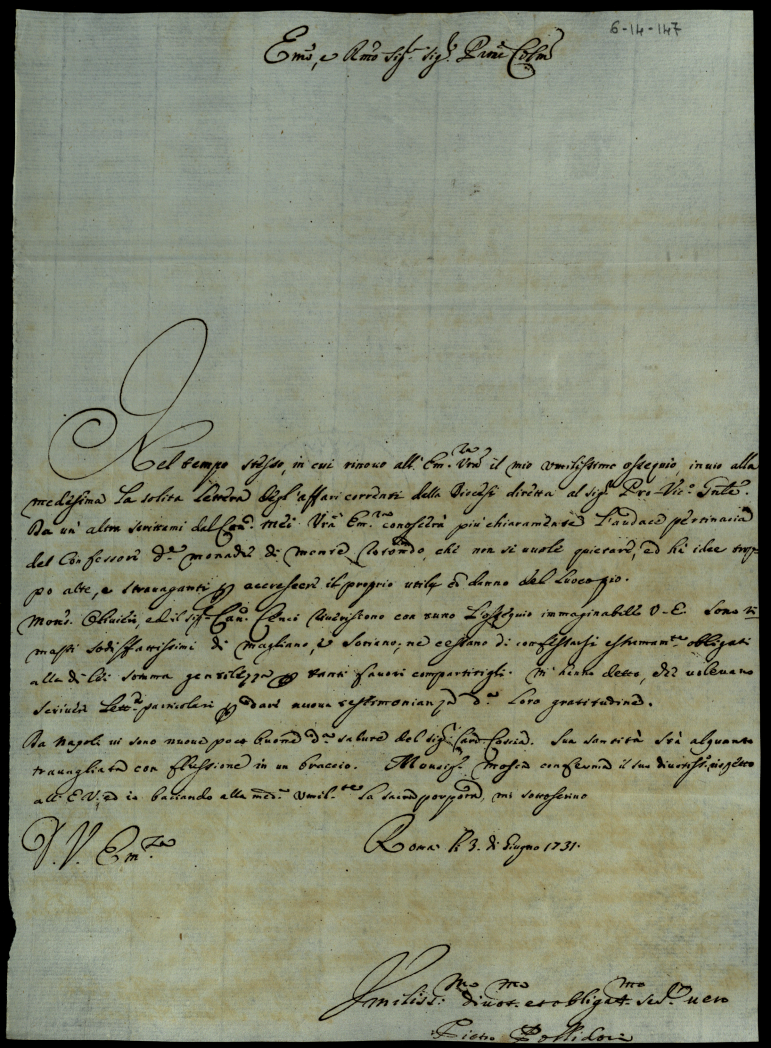 6-14-147
Em.o, e R.mo Sig.r Sig.r P.rone Col.mo
Nel tempo stesso, in cui rinovo all' Em.za Vr̃a il mio umilissimo ossequio, invio alla
medesima la solita lettera degl'affari correnti della Diocesi diretta al Sig.r Pro-Vic.o Gñle.
Da un' altra scrittami dal Can.co Mei Vr̃a Em.za conoscerà più chiaramente l'audace pertinacia
del Confessore d.e Monache di Monte Rotondo, che non si vuole quietare, ed hà idee trop-
po alte, e stravaganti per accrescere il proprio utile in danno del Luoco pio.
Mons.r e il Sig.r Can.co Cenci riveriscono con tutto l'ossequio immaginabile V. E. Sono ri-
masti sodisfattissimi di Magliano, e Soriano; ne cessano di confessarsi estremam.te obligati
alla di Lei somma gentilezza per tanti favori compartitigli. M' hanno detto, che volevano
scrivere lett.e particolari per dare nuova testimonianza d.a loro gratitudine.
Da Napoli vi sono nuove poco buone d.a salute del Sig.r Card. Coscia. Sua Santità stà alquanto
travagliata con flussione in un braccio. Monsig.r conferma il suo divotiss.o rispetto
all' E. V. ed io baciando alla med.a umil.te la sacra porpora, mi sottoscrivo
D. V. Em.za
Roma li 3. di Giugno 1731.
Umiliss.mo divot.mo et obligat.mo Ser.re vero
Pietro Pollidori